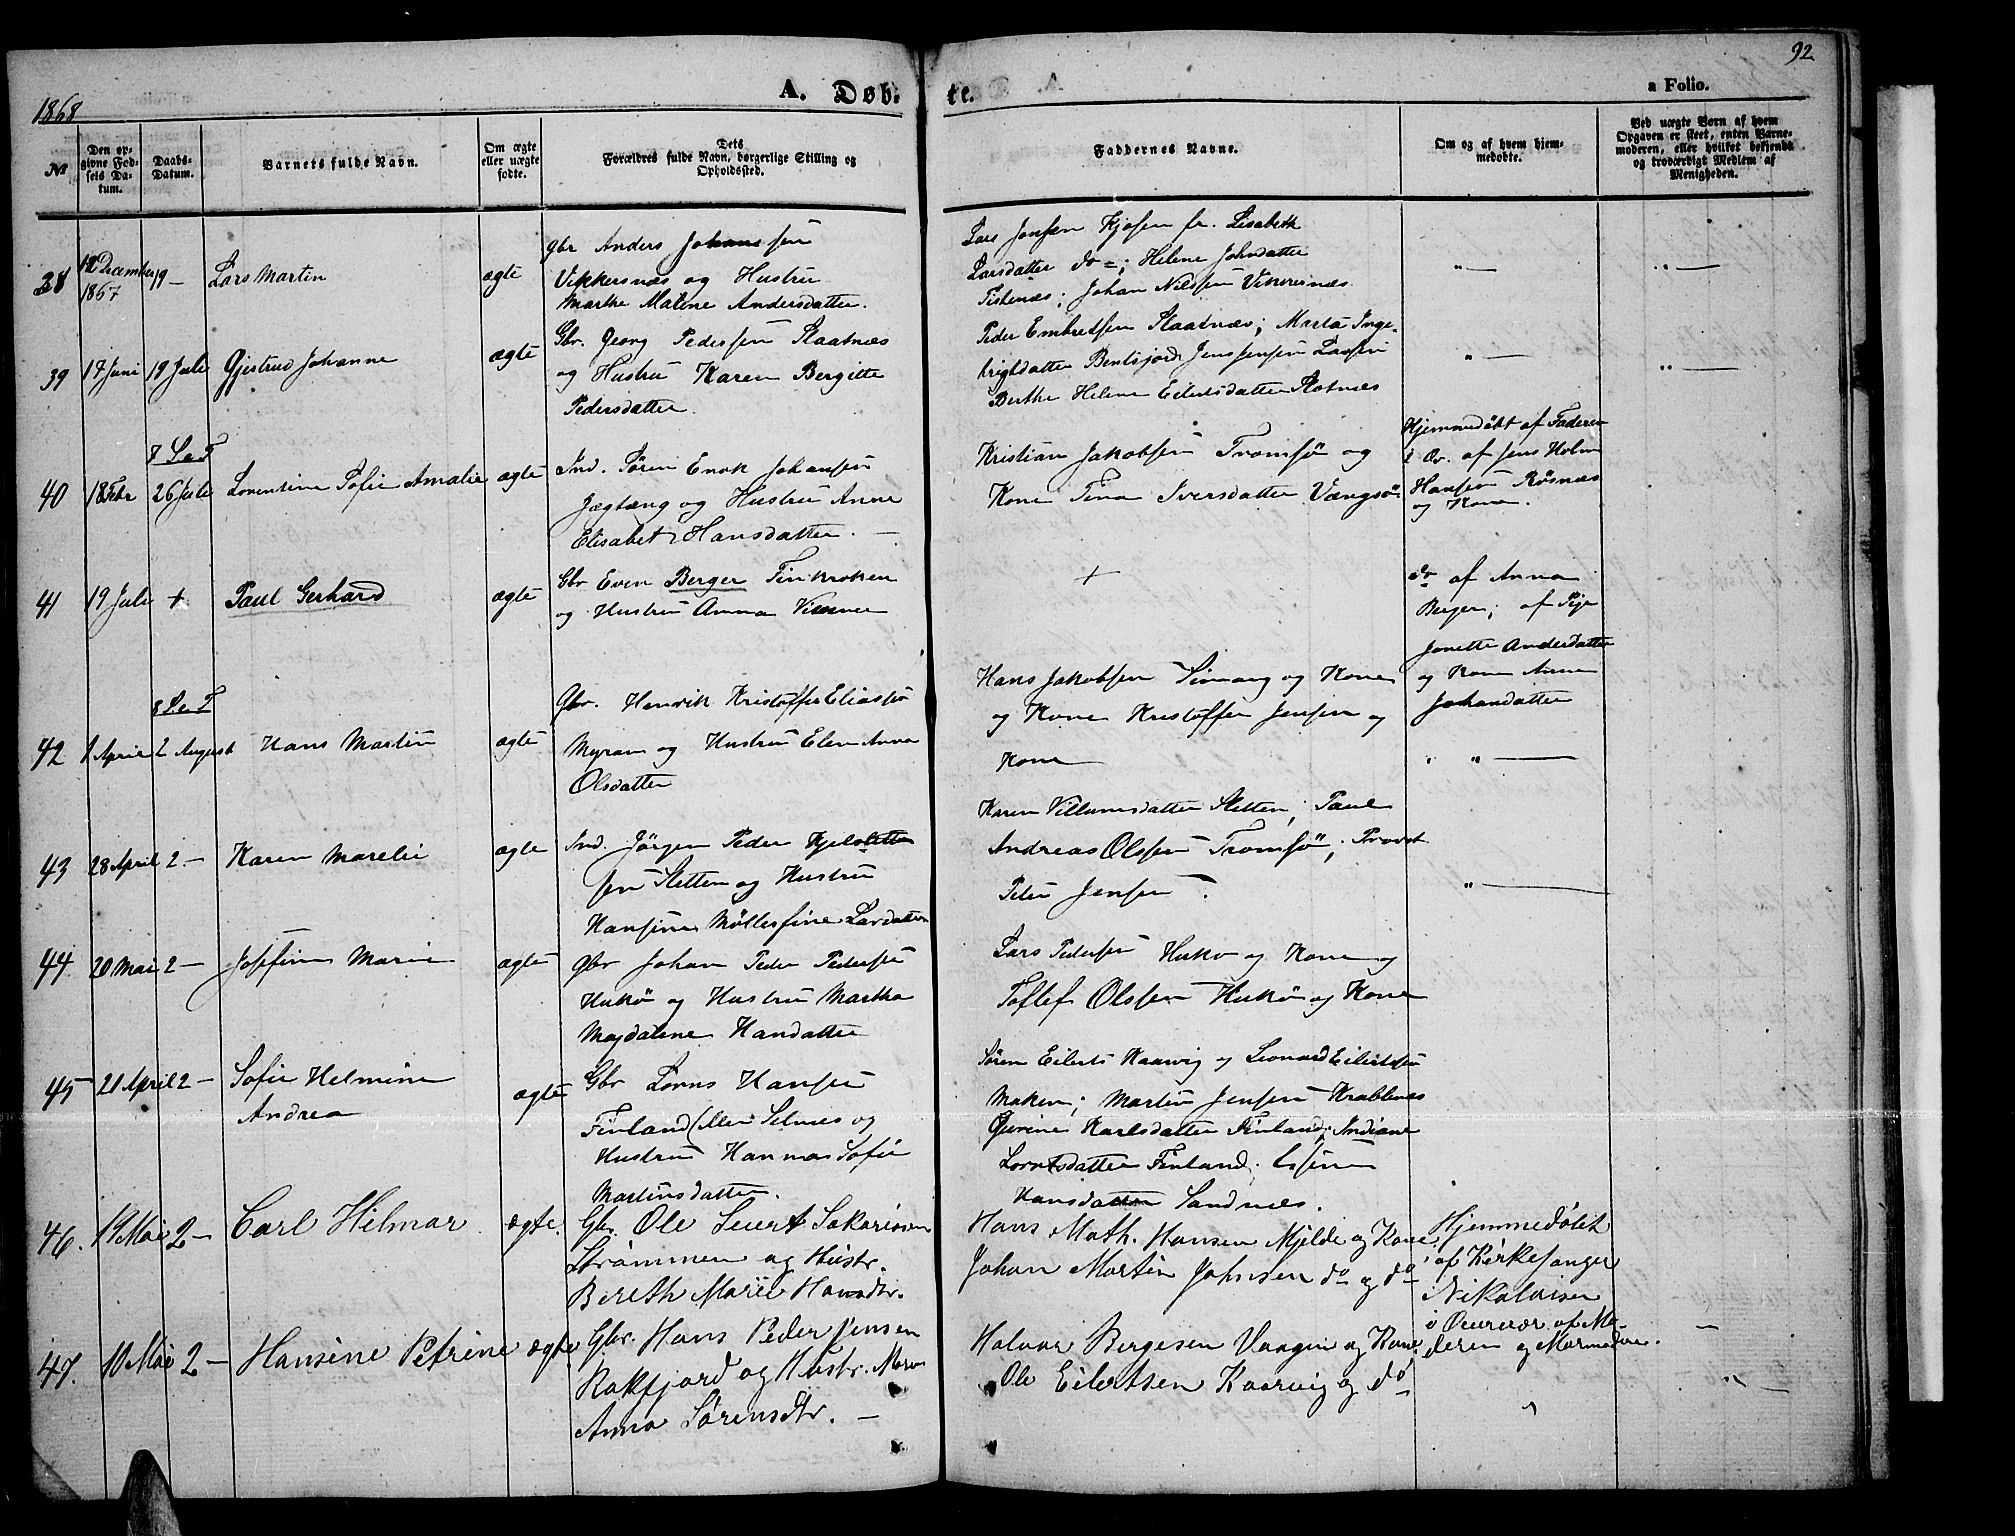 1868
A. Døb-
te.
a Folio.
92
№
Den op-
givne Fød-
sels Da-
tum.
Daabs-
Datum.
Barnets fulde Navn.
Om ægte
eller uægte
fødte.
Dets
Forældres fulde Navn, borgerlige Stilling og
Opholdssted.
Faddernes Navne.
Om og af hvem hjem-
medøbte.
Ved uægte Børn af hvem
Opgaven er skeet, enten Barne-
moderen, eller hvilket bekjendt
og troværdigt Medlem af
Menigheden.
38
12 December
1867
19 —
Lars Martin
ægte
gbr Anders Johanssen
Vikkersnæs og Hustru
Marthe Malene Andersdatter.
Lars Jensen Kjosen fr. Lisabeth
Larsdatter do; Helene Johndatter
Johan Nilssen Vikersnæs
" —
" —
39
17 Juni
19 Juli
Gjertrud Johanne
ægte
Gbr. Georg Pedersen Slaatnæs
og Hustru Karen Bergitte
Pedersdatter.
Peder Embretsen Slaatnæs; Marta Inge-
brigtdatter Bentsjord; Jens Jensen
Berthe Helene Eilertsdatter
" —
" —
7 S e T
40
18 Febr
26 Juli
Lorentine Sofie Amalie
ægte
Ind. Søren Enok Johansen
Jægtæng og Hustru Anne
Elisabet Hansdatter. —
Kristian Jakobsen Tromsø og
Kone Tina Iversdatter Vængsø
Hjemmedøbt af Faderen
i Ov. af Jens Holm
Hansen Røsnæs
og Kone.
41
19 Juli
+
Paul Gerhard
ægte
Gbr Even Berger Finkroken
og Hustru Anna
+
do af Anna
Berger; af Pige
Jonette Andersdatter
og Kone Anne
Johandatter
8 S e T
42
1 April
2 August
Hans Martin
ægte
Gbr. Henrik Kristoffer Eliassen
Myran og Hustru Elen Anna
Olsdatter
Hans Jakobsen og Kone
og Kone Kristoffer Jensen og
Kone
" —
43
28 April
2 —
Karen Marelie
ægte
Ind. Jørgen Peder
sen Sletten og Hustru
Hansine Larsdatter
Karen Villumsdatter Sletten; Paul
Andreas Olssen Tromsø; Provst
Peter Jensen.
" —
44
20 Mai
2 —
Josefine Marie
ægte
gbr Johan Peder Pedersen
Hukø og Hustru Martha
Magdalene Handatter
Lars Pedersen Hukø og Kone og
Toflef Olssen Hukø og Kone
45
21 April
2 —
Sofie Helmine
Andrea
ægte
Gbr Lorns Hansen
Finland (eller Selnes og
Hustru Hanna Sofie
Martinsdatter.
Søren Eilerts Kaarvig og Leonard Eilertsen
Maken; Martin Jensen Krabbenæs
Karlsdatter Finland;
Lorntsdatter Finland;
Hansdatter Sandnæs.
46.
19 Mai
2 —
Carl Hilmar
ægte.
Gbr. Ole Seiert Sakariasen
Strømmen og Hustr.
Bereth Marie Hansdtr.
Hans Math. Hansen Mjelde og Kone,
Johan Martin Johnsen do og do
Hjemmedøbt
af Kirkesanger
Nikolaisen
i Overvær af Mo-
deren og Mormoderen.
—
47.
10 Mai
2 —
Hansine Petrine
ægte
Gbr. Hans Peder Jensen
Rakfjord og Hustr. Maren
Anna Sørensdtr. —
Halvor Bergesen Vaagen og Kone.
Ole Eilertsen Kaarvig og do
"
" —